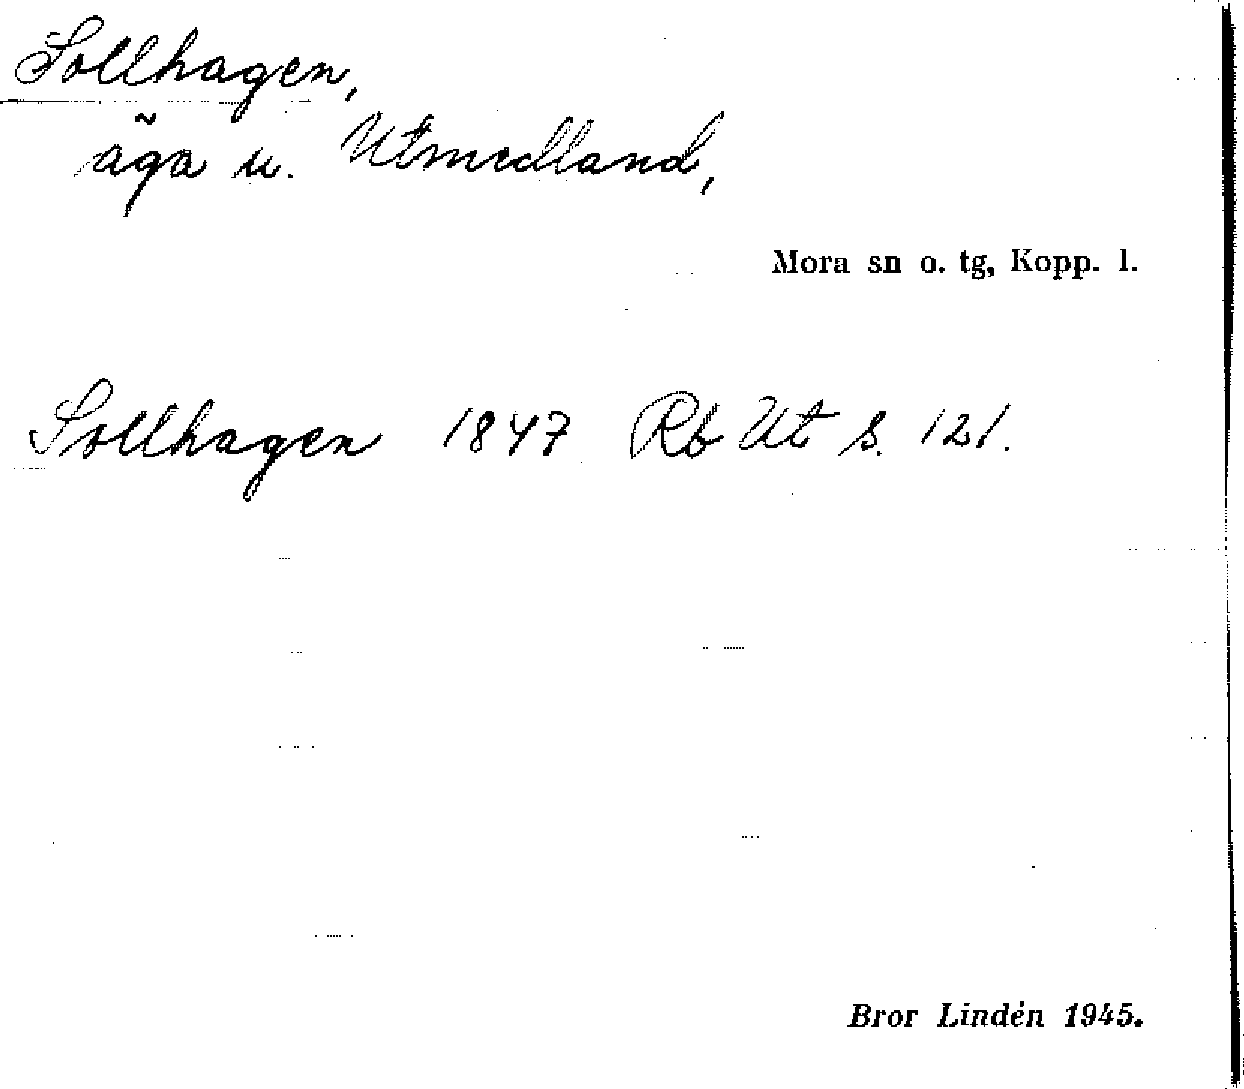 Sollhagen,
äga u. Utmedland,
Mora sn o. tg, Kopp. l.
Sollhagen 1847 Rb Ut s. 121.
Bror Lindén 1945.